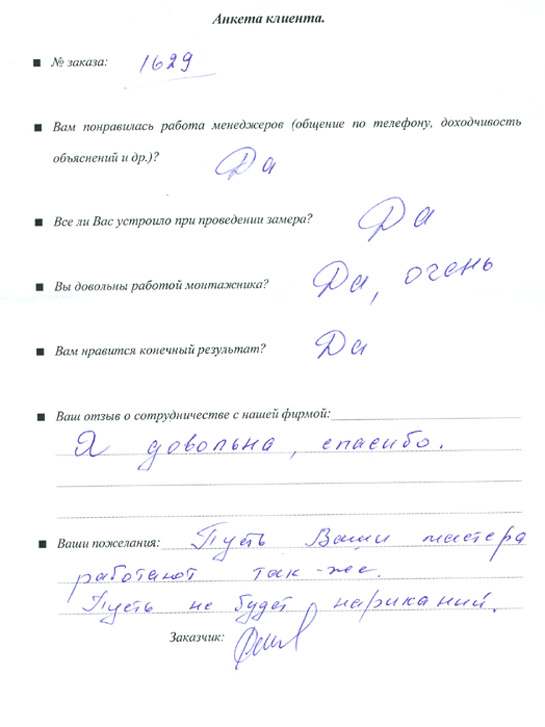 Анкета клиента.
■ № заказа: 1629
■ Вам понравилась работа менеджеров (общение по телефону, доходчивость
объяснений и др.)? Да
■ Все ли Вас устроило при проведении замера? Да
■ Вы довольны работой монтажника? Да, очень
■ Вам нравится конечный результат? Да
■ Ваш отзыв о сотрудничестве с нашей фирмой:
Я довольна, спасибо.
■ Ваши пожелания: Пусть Ваши мастера
работают так-же.
Пусть не будет нариканий.
Заказчик: